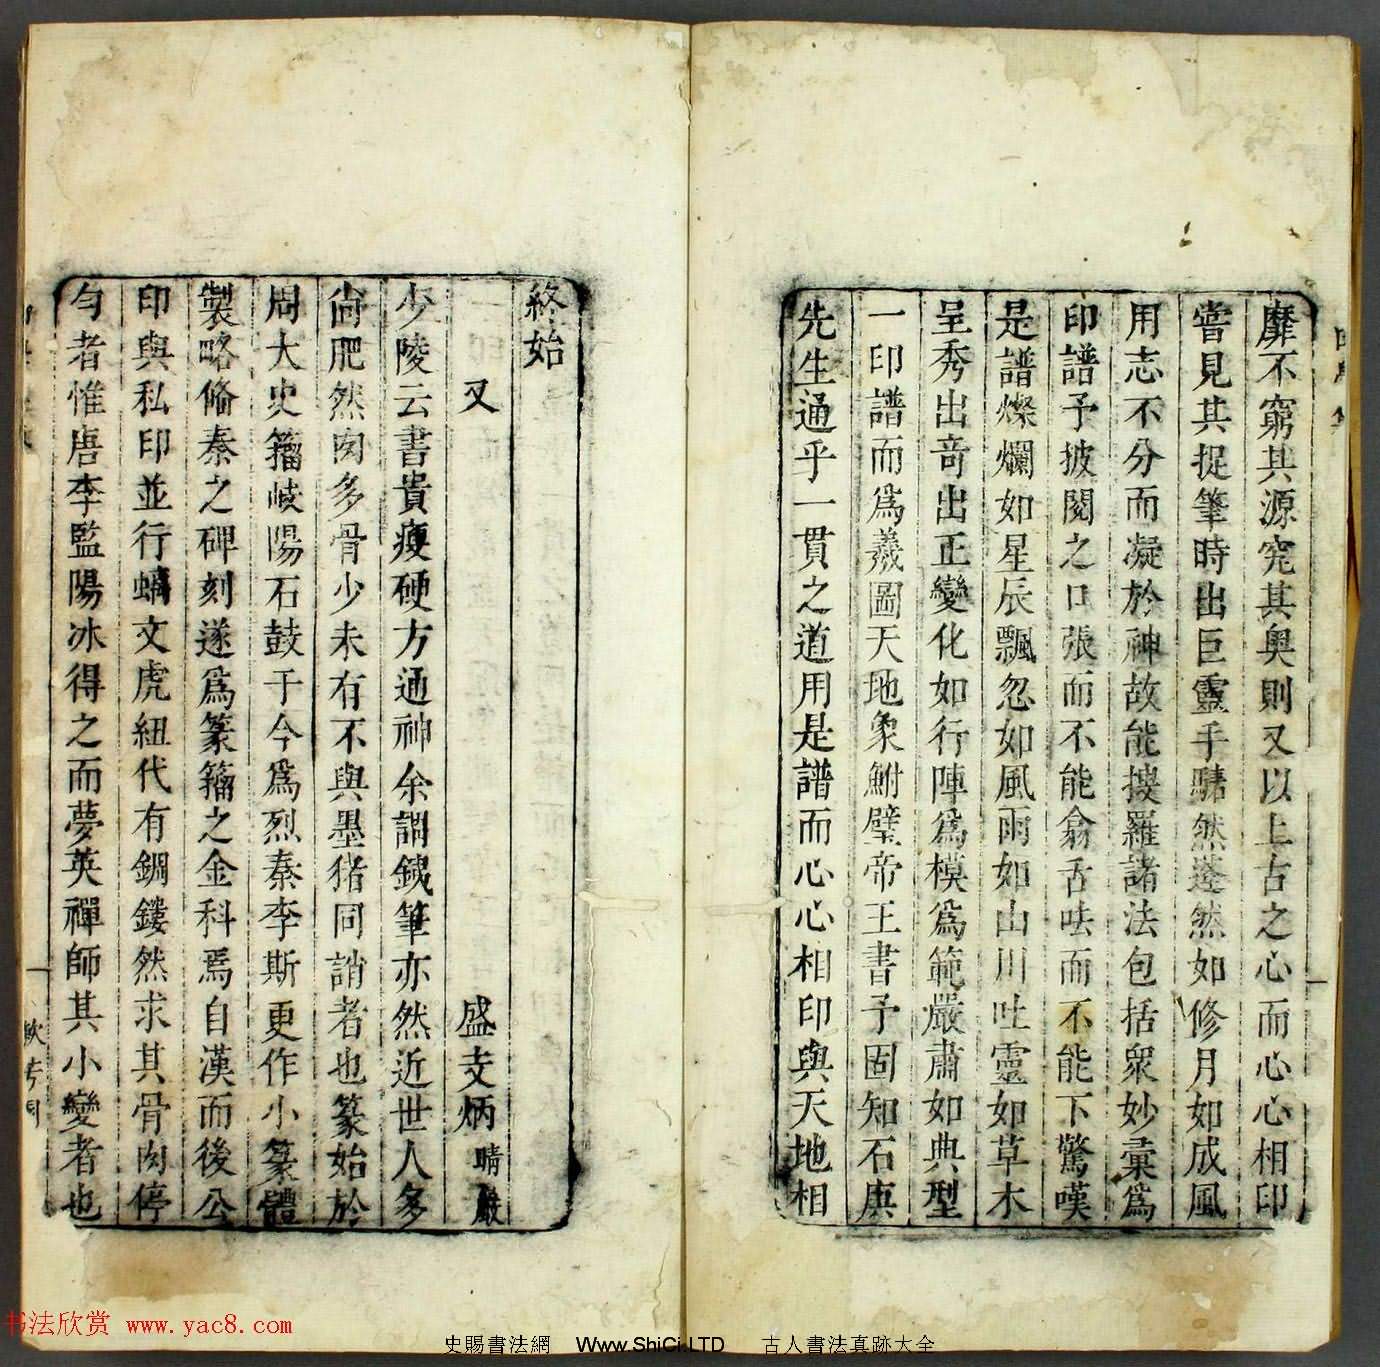 靡不窮其源究其奧則又以上古之心而心心相印
嘗見其捉筆時出巨靈手騞然蓬然如修月如成風
用志不分而凝於神故能搜羅諸法包括衆妙彙爲
印譜予披閱之口張而不能翕舌呿而不能下驚嘆
是譜燦爛如星辰飄忽如風雨如山川吐靈如草木
呈秀出奇出正變化如行陣爲模爲範嚴肅如典型
一印譜而爲羲圖天地象鮒璧帝王書予固知石庚
先生通乎一貫之道用是譜而心心相印與天地相
終始
又 盛支炳 晴巖
少陵云書貴瘦硬方通神余謂鐵筆亦然近世人多
尙肥然肉多骨少未有不與墨猪同誚者也篆始於
周大史籀岐陽石鼓于今爲烈秦李斯更作小篆體
製略俻秦之碑刻遂爲篆籀之金科焉自漢而後公
印與私印並行螭文虎紐代有鋼鏤然求其骨肉停
勻者惟唐李監陽冰得之而夢英禪師其小變者也
书法欣赏 www.yac8.com
史賜書法網 Www.ShiCi.LTD 古人書法真跡大全